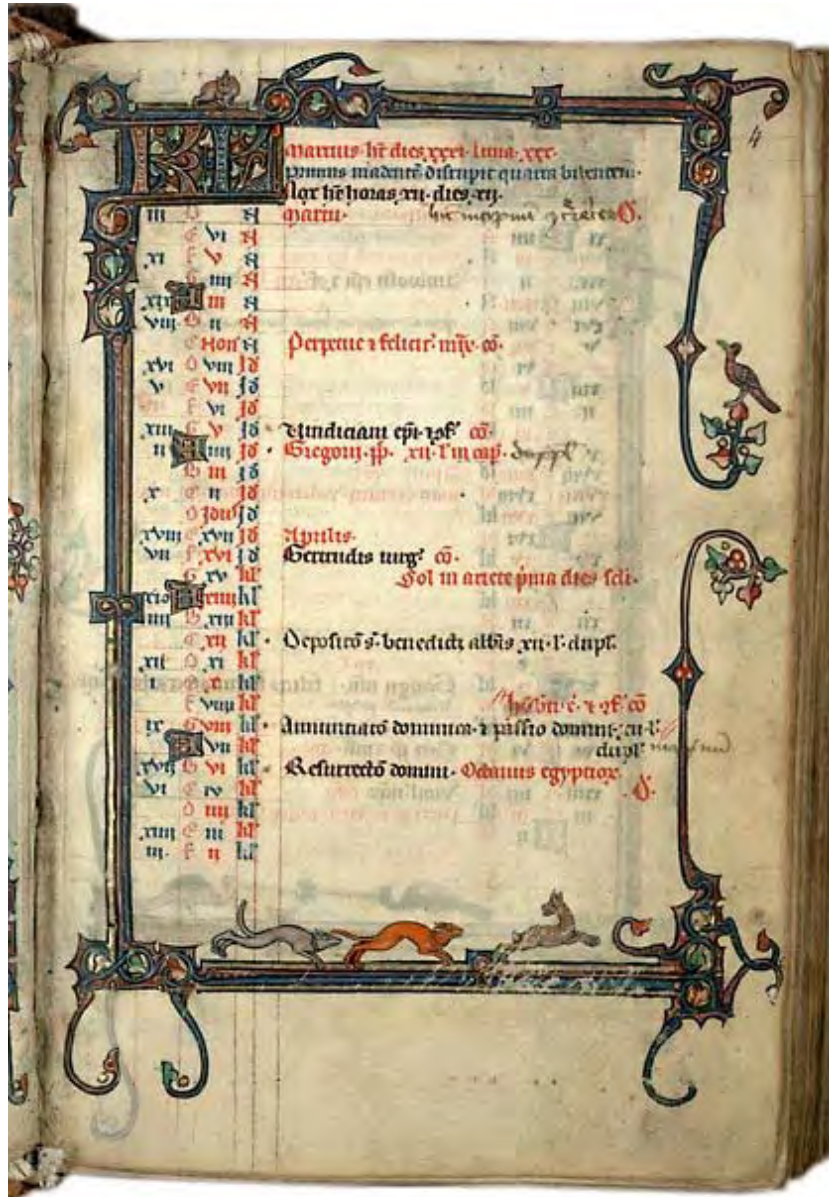 4
KL Martius. ht dies xxxi. luna. xxx.
primus madentē disrupit quarta bibentem.
Nox ht horas. xii. dies. xij.
iii D kl Marcii.
E vi N
xi F v N
G iiii N
xix A iii N
viii B ii N
C Non N Perpetue ⁊ felicit. mr̄e. cō.
xvi D viii Id
v E vii Id
F vi Id
xiii G v Id Vindiciani ep̄i. ⁊ ɔf. cō.
ii A iiii Id Gregorij. pp̄. xii. l. in cap̄. duppl
B iii Id
x C ii Id
D Idus
xviii E xvii kl Aprilis.
vii F xvi kl Gertrudis virg. cō.
G xv kl Sol in ariete p̄ima dies scli.
A xiiii kl
iiii B xiii kl
C xii kl Depositō s. benedicti albis xii. l. dupl.
xii D xi kl
i E x kl
F viiii kl ⁊ ɔf. cō
ix G viii kl Annunciatō dominica. ⁊ passio domini. xii. l.
A vii kl dupl
xvii B vi kl Resurrectō domini. Octauus egyptior.
vi C v kl
D iiii kl
xiiii E iii kl
iii. F ii kl